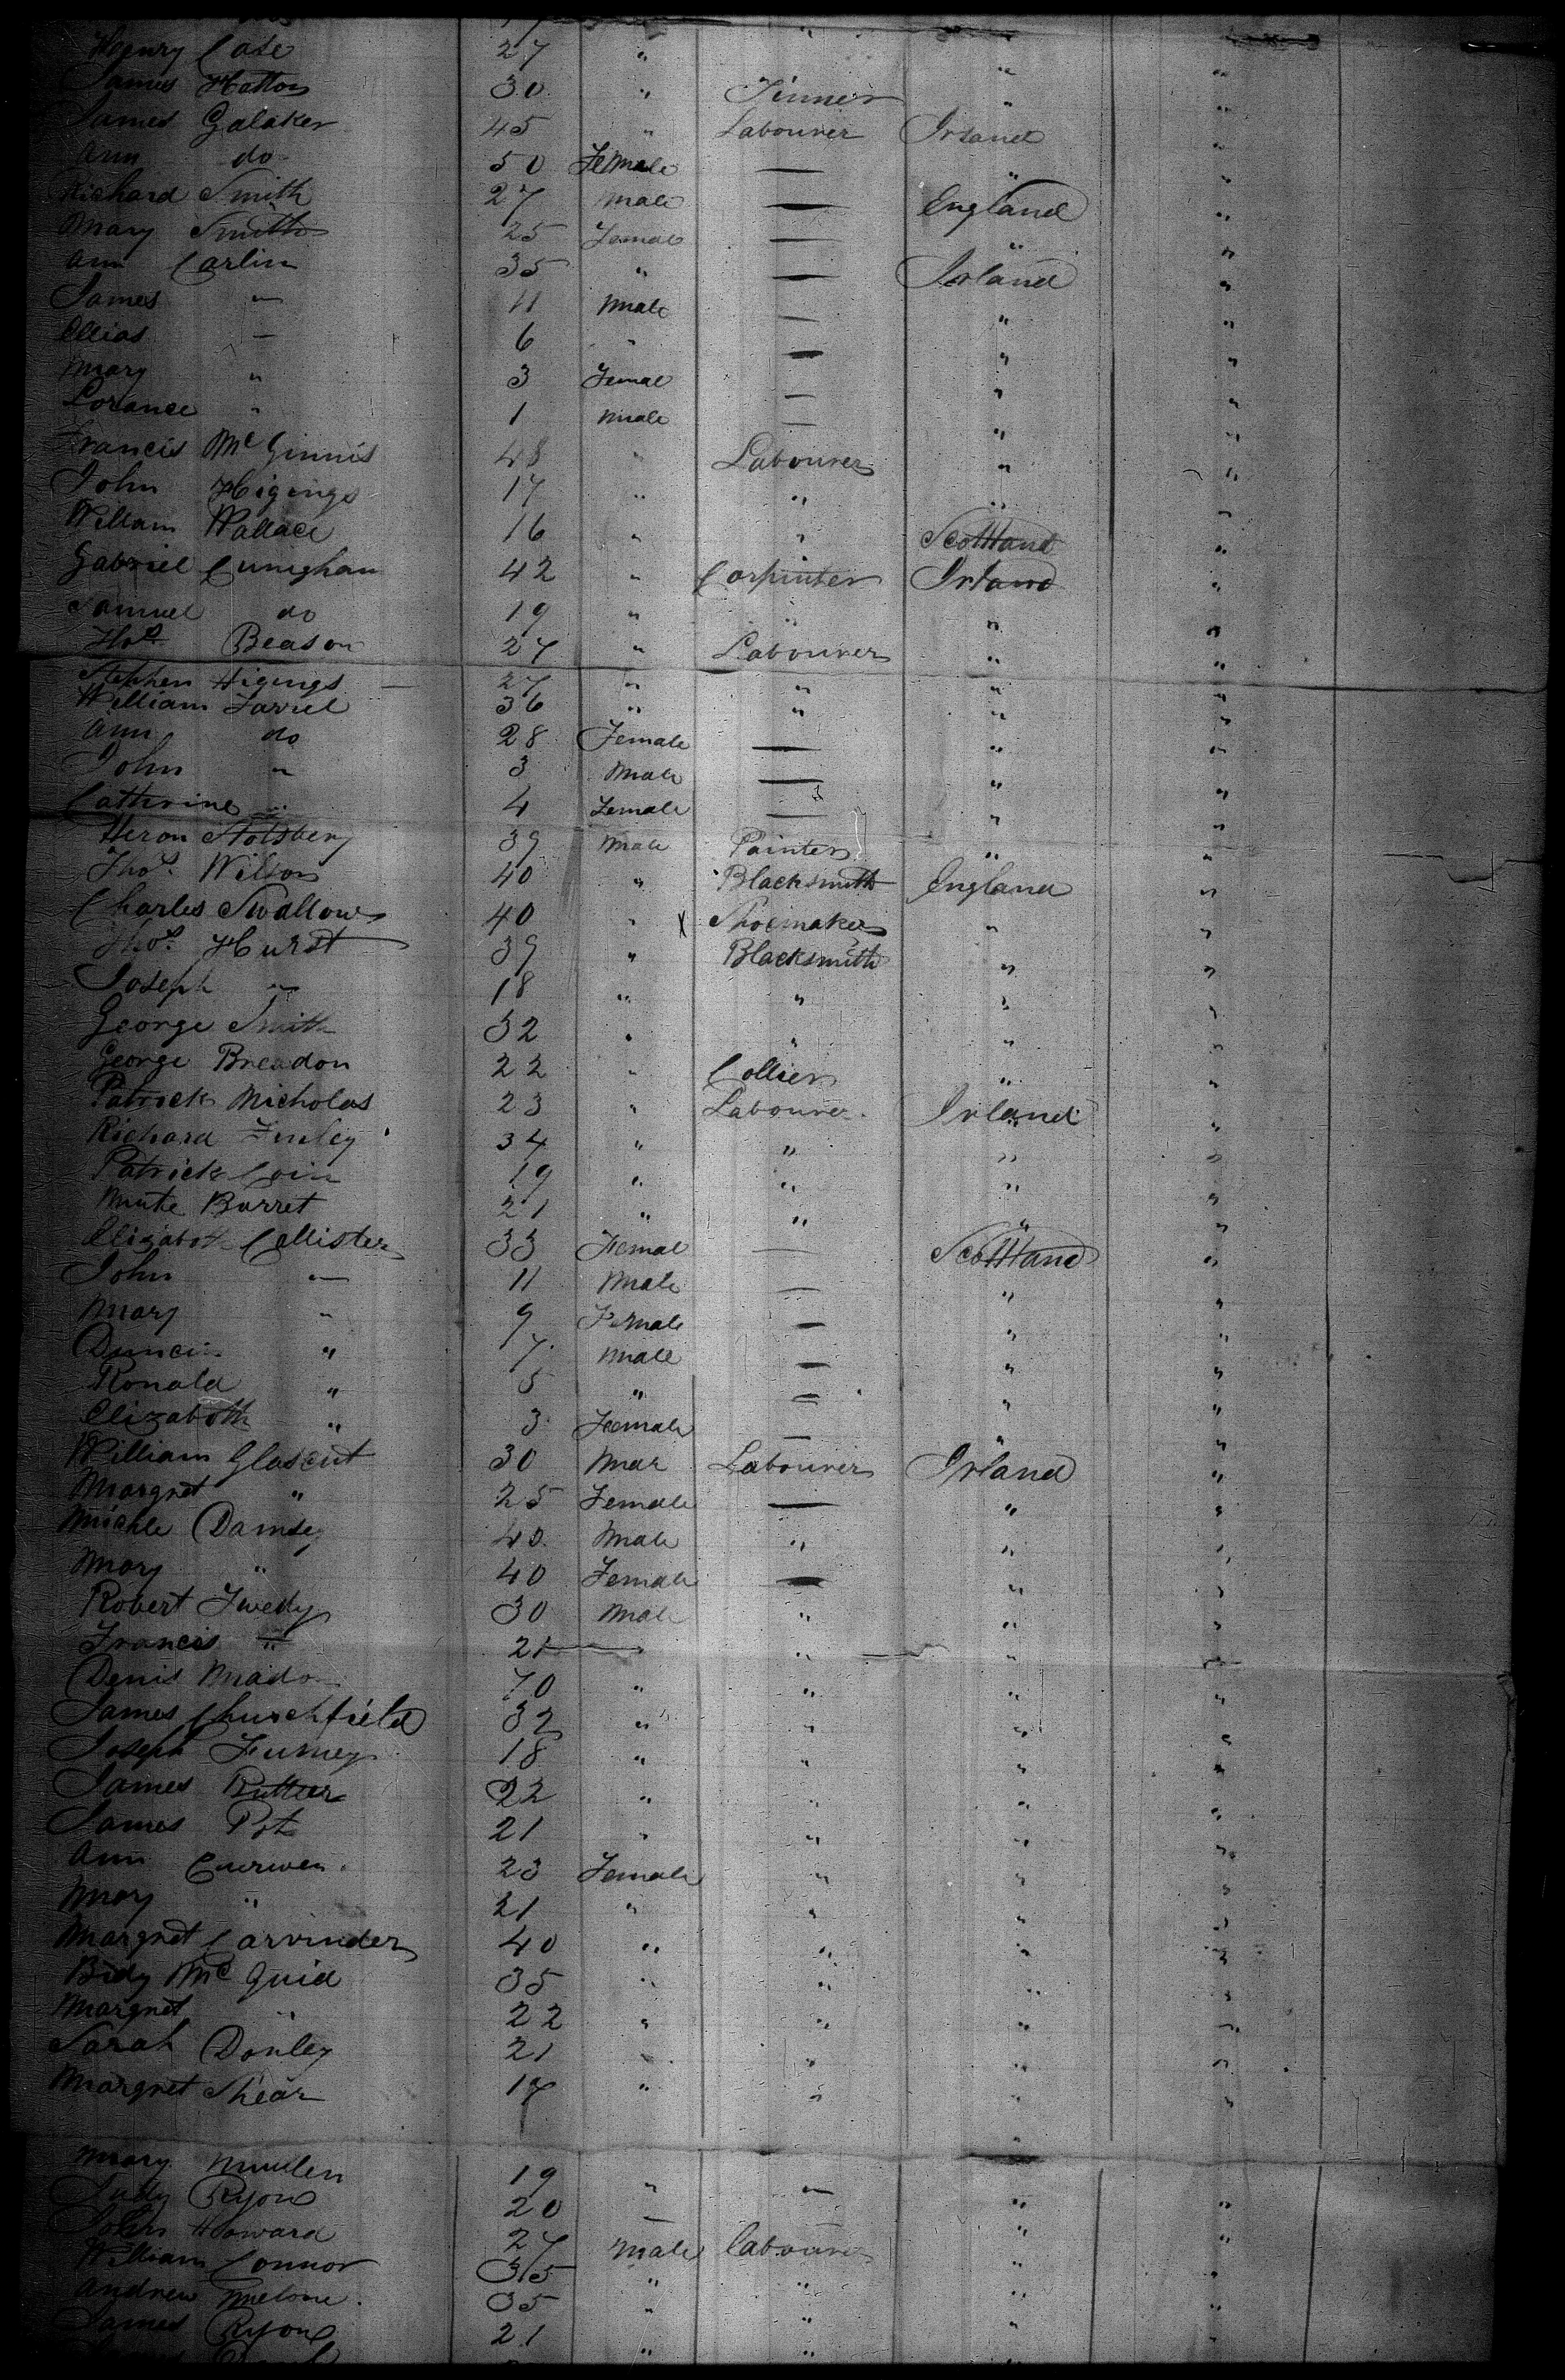 Henry Case 27 "
James Hatton 30 " Tinner "
James Galaker 45 " Labourer Irland "
Ann do 50 Female — " "
Richard Smith 27 Male — England "
Mary Smith 25 Female — " "
Ann Carlin 35 " — Irland "
James " 11 Male — " "
Ellias — 6 " — " "
Mary " 3 Femal — " "
Lorance " 1 Male — " "
Francis Mc Ginnis 48 " Labourer " "
John Higings 17 " " " "
Willam Wallace 16 " " Scottland "
Gabriel Cunighan 42 " Carpinter Irland "
Samuel do 19 " " " "
Thos Beason 27 " Labourer " "
Stephen Higings 27 " " " "
William Farrel 36 " " " "
Ann do 28 Female — " "
John " 3 Male — " "
Cathrine " 4 Female — " "
Heron Stolsbery 39 Male Painter " "
Thos. Wilson 40 " Blacksmith England "
Charles Swallow 40 " x Shoemaker " "
Thos. Hurst 39 " Blacksmith " "
Joseph " 18 " " " "
George Smith 32 " " " "
George Breadon 22 " Collier " "
Patrick Nicholas 23 " Labourer Irland "
Richard Finley 34 " " " "
Patrick Coin 19 " " " "
Burret 21 " " " "
Elizaboth Callister 33 Femal — Scottland "
John — 11 Male — " "
Mary " 9 Female — " "
Duncin " 7 Male — " "
Ronald " 5 " — " "
Elizaboth " 3 Female — " "
William Glascut 30 Mar Labourer Irland "
Margret " 25 Female — " "
Michle Damsey 40 Male " " "
Mary " 40 Female — " "
Robert Twedy 30 Male " " "
Francis " 21 " " "
Denis 70 " " " "
James Churchfield 32 " " " "
Joseph Furney 18 " " " "
James Rutter 22 " " " "
James Pot 21 " " " "
Ann Curwen 23 Female " " "
Mary " 21 " " " "
Margret Carvinder 40 " " " "
Bidy Mc Quid 35 " " " "
Margret " 22 " " " "
Sarah Donley 21 " " " "
Margret Shear 17 " " " "
Mary Mullen 19 " — " "
Judy Ryon 20 — " "
John Howard 27 Male labourer " "
William Connor 35 " " " "
Andrew Melone 35 " " " "
James Ryon 21 " " " "